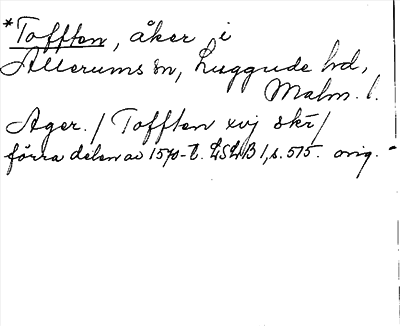 *Tofften, åker i
Allerums sn, Luggude hd,
Malm. l.
Ager. / Tofften xvj skr /
förra delen av 1570-t. LSLB 1, s. 515. orig.